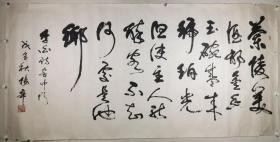 蘭陵美
酒鬱金香
玉碗盛来
琥珀光
但使主人能
醉客不知
何處是他
鄉
李白詩客中行
戊子秋